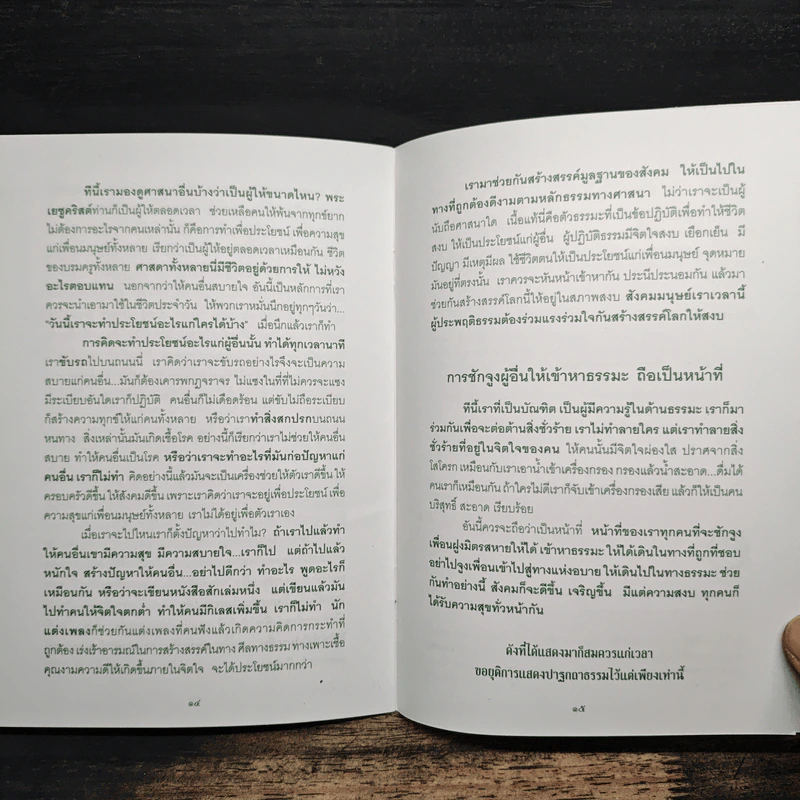 ทีนี้เรามองดูศาสนาอื่นบ้างว่าเป็นผู้ให้ขนาดไหน? พระ
เยซูคริสต์ท่านก็เป็นผู้ให้ตลอดเวลา ช่วยเหลือคนให้พ้นจากทุกข์ยาก
ไม่ต้องการอะไรจากคนเหล่านั้น ก็คือการทำเพื่อประโยชน์ เพื่อความสุข
แก่เพื่อนมนุษย์ทั้งหลาย เรียกว่าเป็นผู้ให้อยู่ตลอดเวลาเหมือนกัน ชีวิต
ของบรมครูทั้งหลาย ศาสดาทั้งหลายนี่มีชีวิตอยู่ด้วยการให้ ไม่หวัง
อะไรตอบแทน นอกจากว่าให้คนอื่นสบายใจ อันนี้เป็นหลักการที่เรา
ควรจะนำเอามาใช้ในชีวิตประจำวัน ให้พวกเราหมั่นนึกอยู่ทุกๆวันว่า...
“วันนี้เราจะทำประโยชน์อะไรแก่ใครได้บ้าง” เมื่อนึกแล้วเราก็ทำ
การคิดจะทำประโยชน์อะไรแก่ผู้อื่นนั้น ทำได้ทุกเวลานาที
เราขับรถไปบนถนนนี่ เราคิดว่าเราจะขับรถอย่างไรจึงจะเป็นความ
สบายแก่คนอื่น...มันก็ต้องเคารพกฎจราจร ไม่แซงในที่ที่ไม่ควรจะแซง
มีระเบียบอันใดเราก็ปฏิบัติ คนอื่นก็ไม่เดือดร้อน แต่ขับไม่ถือระเบียบ
ก็สร้างความทุกข์ให้แก่คนทั้งหลาย หรือว่าเราทำสิ่งสกปรกบนถนน
หนทาง สิ่งเหล่านั้นมันเกิดเชื้อโรค อย่างนี้ก็เรียกว่าเราไม่ช่วยให้คนอื่น
สบาย ทำให้คนอื่นเป็นโรค หรือว่าจะทำอะไรที่มันก่อปัญหาแก่
คนอื่น เราก็ไม่ทำ คิดอย่างนี้แล้วมันจะเป็นเครื่องช่วยให้ตัวเราดีขึ้น ให้
ครอบครัวดีขึ้น ให้สังคมดีขึ้น เพราะเราคิดว่าเราจะอยู่เพื่อประโยชน์ เพื่อ
ความสุขแก่เพื่อนมนุษย์ทั้งหลาย เราไม่ได้อยู่เพื่อตัวเราเอง
เมื่อเราจะไปไหนเราก็ตั้งปัญหาว่าไปทำไม? ถ้าเราไปแล้วทำ
ให้คนอื่นเขามีความสุข มีความสบายใจ...เราก็ไป แต่ถ้าไปแล้ว
หนักใจ สร้างปัญหาให้คนอื่น...อย่าไปดีกว่า ทำอะไร พูดอะไรก็
เหมือนกัน หรือว่าจะเขียนหนังสือสักเล่มหนึ่ง แต่เขียนแล้วมัน
ไปทำคนให้จิตใจตกต่ำ ทำให้คนมีกิเลสเพิ่มขึ้น เราก็ไม่ทำ นัก
แต่งเพลงก็ช่วยกันแต่งเพลงที่คนฟังแล้วเกิดความคิดการกระทำที่
ถูกต้อง เร่งเร้าอารมณ์ในการสร้างสรรค์ในทาง ศีลทางธรรม ทางเพาะเชื้อ
คุณงามความดีให้เกิดขึ้นภายในจิตใจ จะได้ประโยชน์มากกว่า
๑๔
เรามาช่วยกันสร้างสรรค์มูลฐานของสังคม ให้เป็นไปใน
ทางที่ถูกต้องดีงามตามหลักธรรมทางศาสนา ไม่ว่าเราจะเป็นผู้
นับถือศาสนาใด เนื้อแท้นี่คือตัวธรรมะที่เป็นข้อปฏิบัติเพื่อทำให้ชีวิต
สงบ ให้เป็นประโยชน์แก่ผู้อื่น ผู้ปฏิบัติธรรมมีจิตใจสงบ เยือกเย็น มี
ปัญญา มีเหตุมีผล ใช้ชีวิตตนให้เป็นประโยชน์แก่เพื่อนมนุษย์ จุดหมาย
มันอยู่ที่ตรงนั้น เราควรจะหันหน้าเข้าหากัน ประนีประนอมกัน แล้วมา
ช่วยกันสร้างสรรค์โลกนี้ให้อยู่ในสภาพสงบ สังคมมนุษย์เราเวลานี้
ผู้ประพฤติธรรมต้องร่วมแรงร่วมใจกันสร้างสรรค์โลกให้สงบ
การชักจูงผู้อื่นให้เข้าหาธรรมะ ถือเป็นหน้าที่
ทีนี้เราที่เป็นบัณฑิต เป็นผู้มีความรู้ในด้านธรรมะ เราก็มา
ร่วมกันเพื่อจะต่อต้านสิ่งชั่วร้าย เราไม่ทำลายใคร แต่เราทำลายสิ่ง
ชั่วร้ายที่อยู่ในจิตใจของคน ให้คนนั้นมีจิตใจผ่องใส ปราศจากสิ่ง
โสโครก เหมือนกับเราเอาน้ำเข้าเครื่องกรอง กรองแล้วน้ำสะอาด...ดื่มได้
คนเราก็เหมือนกัน ถ้าใครไม่ดีเราก็จับเข้าเครื่องกรองเสีย แล้วก็ให้เป็นคน
บริสุทธิ์ สะอาด เรียบร้อย
อันนี้ควรจะถือว่าเป็นหน้าที่ หน้าที่ของเราทุกคนที่จะชักจูง
เพื่อนฝูงมิตรสหายให้ได้ เข้าหาธรรมะ ให้ได้เดินในทางที่ถูกที่ชอบ
อย่าไปจูงเพื่อนเข้าไปสู่ทางแห่งอบาย ให้เดินไปในทางธรรมะ ช่วย
กันทำอย่างนี้ สังคมก็จะดีขึ้น เจริญขึ้น มีแต่ความสงบ ทุกคนก็
ได้รับความสุขทั่วหน้ากัน
ดังที่ได้แสดงมาก็สมควรแก่เวลา
ขอยุติการแสดงปาฐกถาธรรมไว้แต่เพียงเท่านี้
๑๕